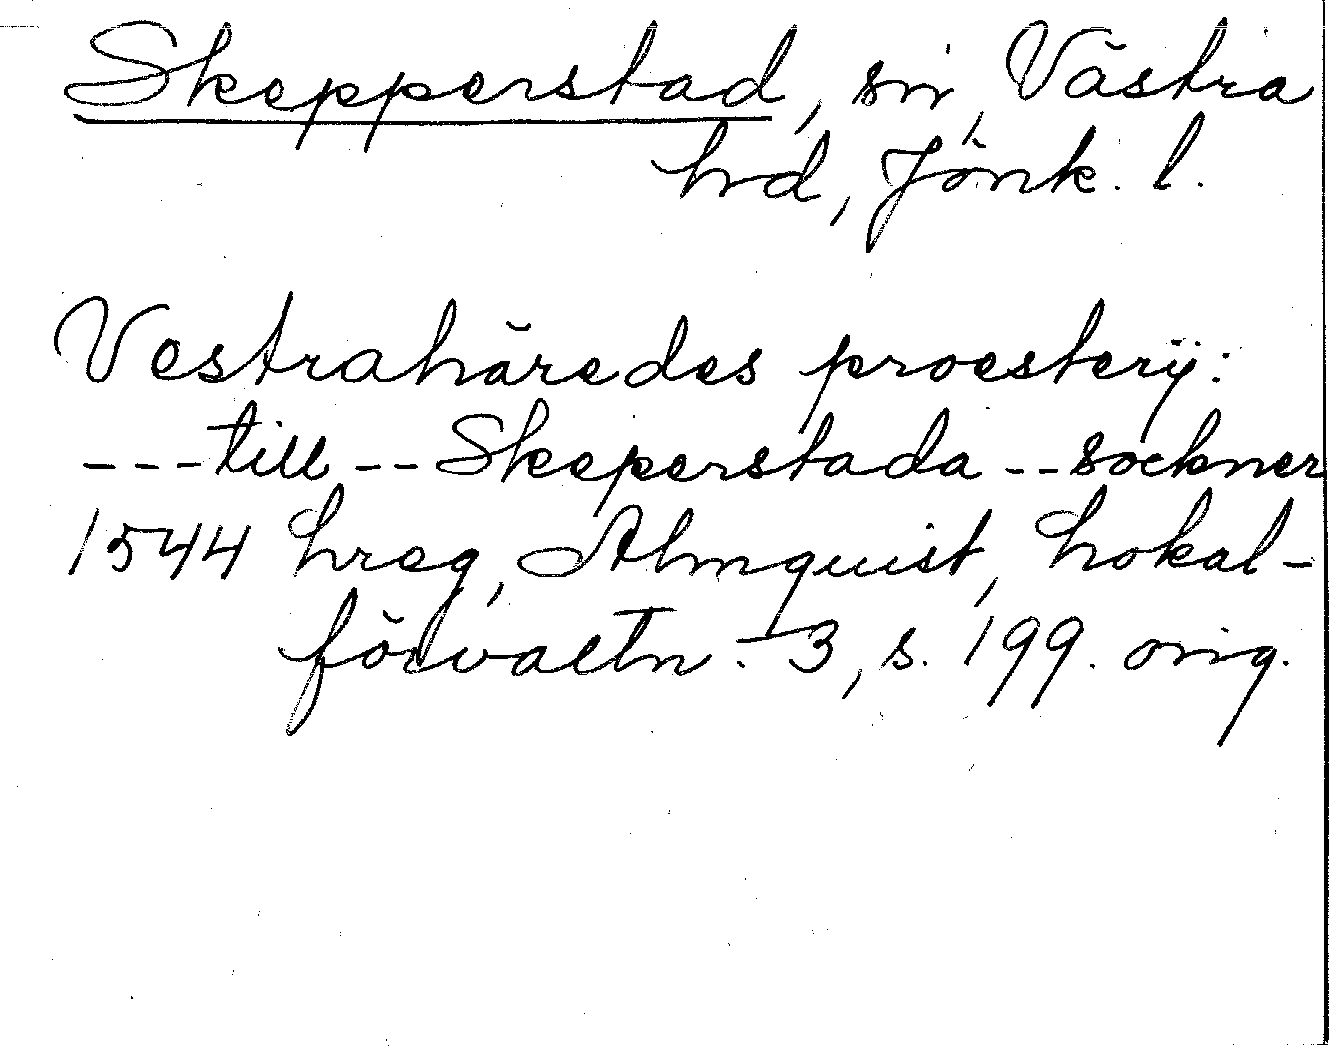 Skepperstad, sn, Västra
hd, Jönk. l.
Vestrahäredes proesterÿ:
---till--Skeperstada--sockner
1544 hreg, Almquist, Lokal-
förvaltn. 3, s. 199. orig.